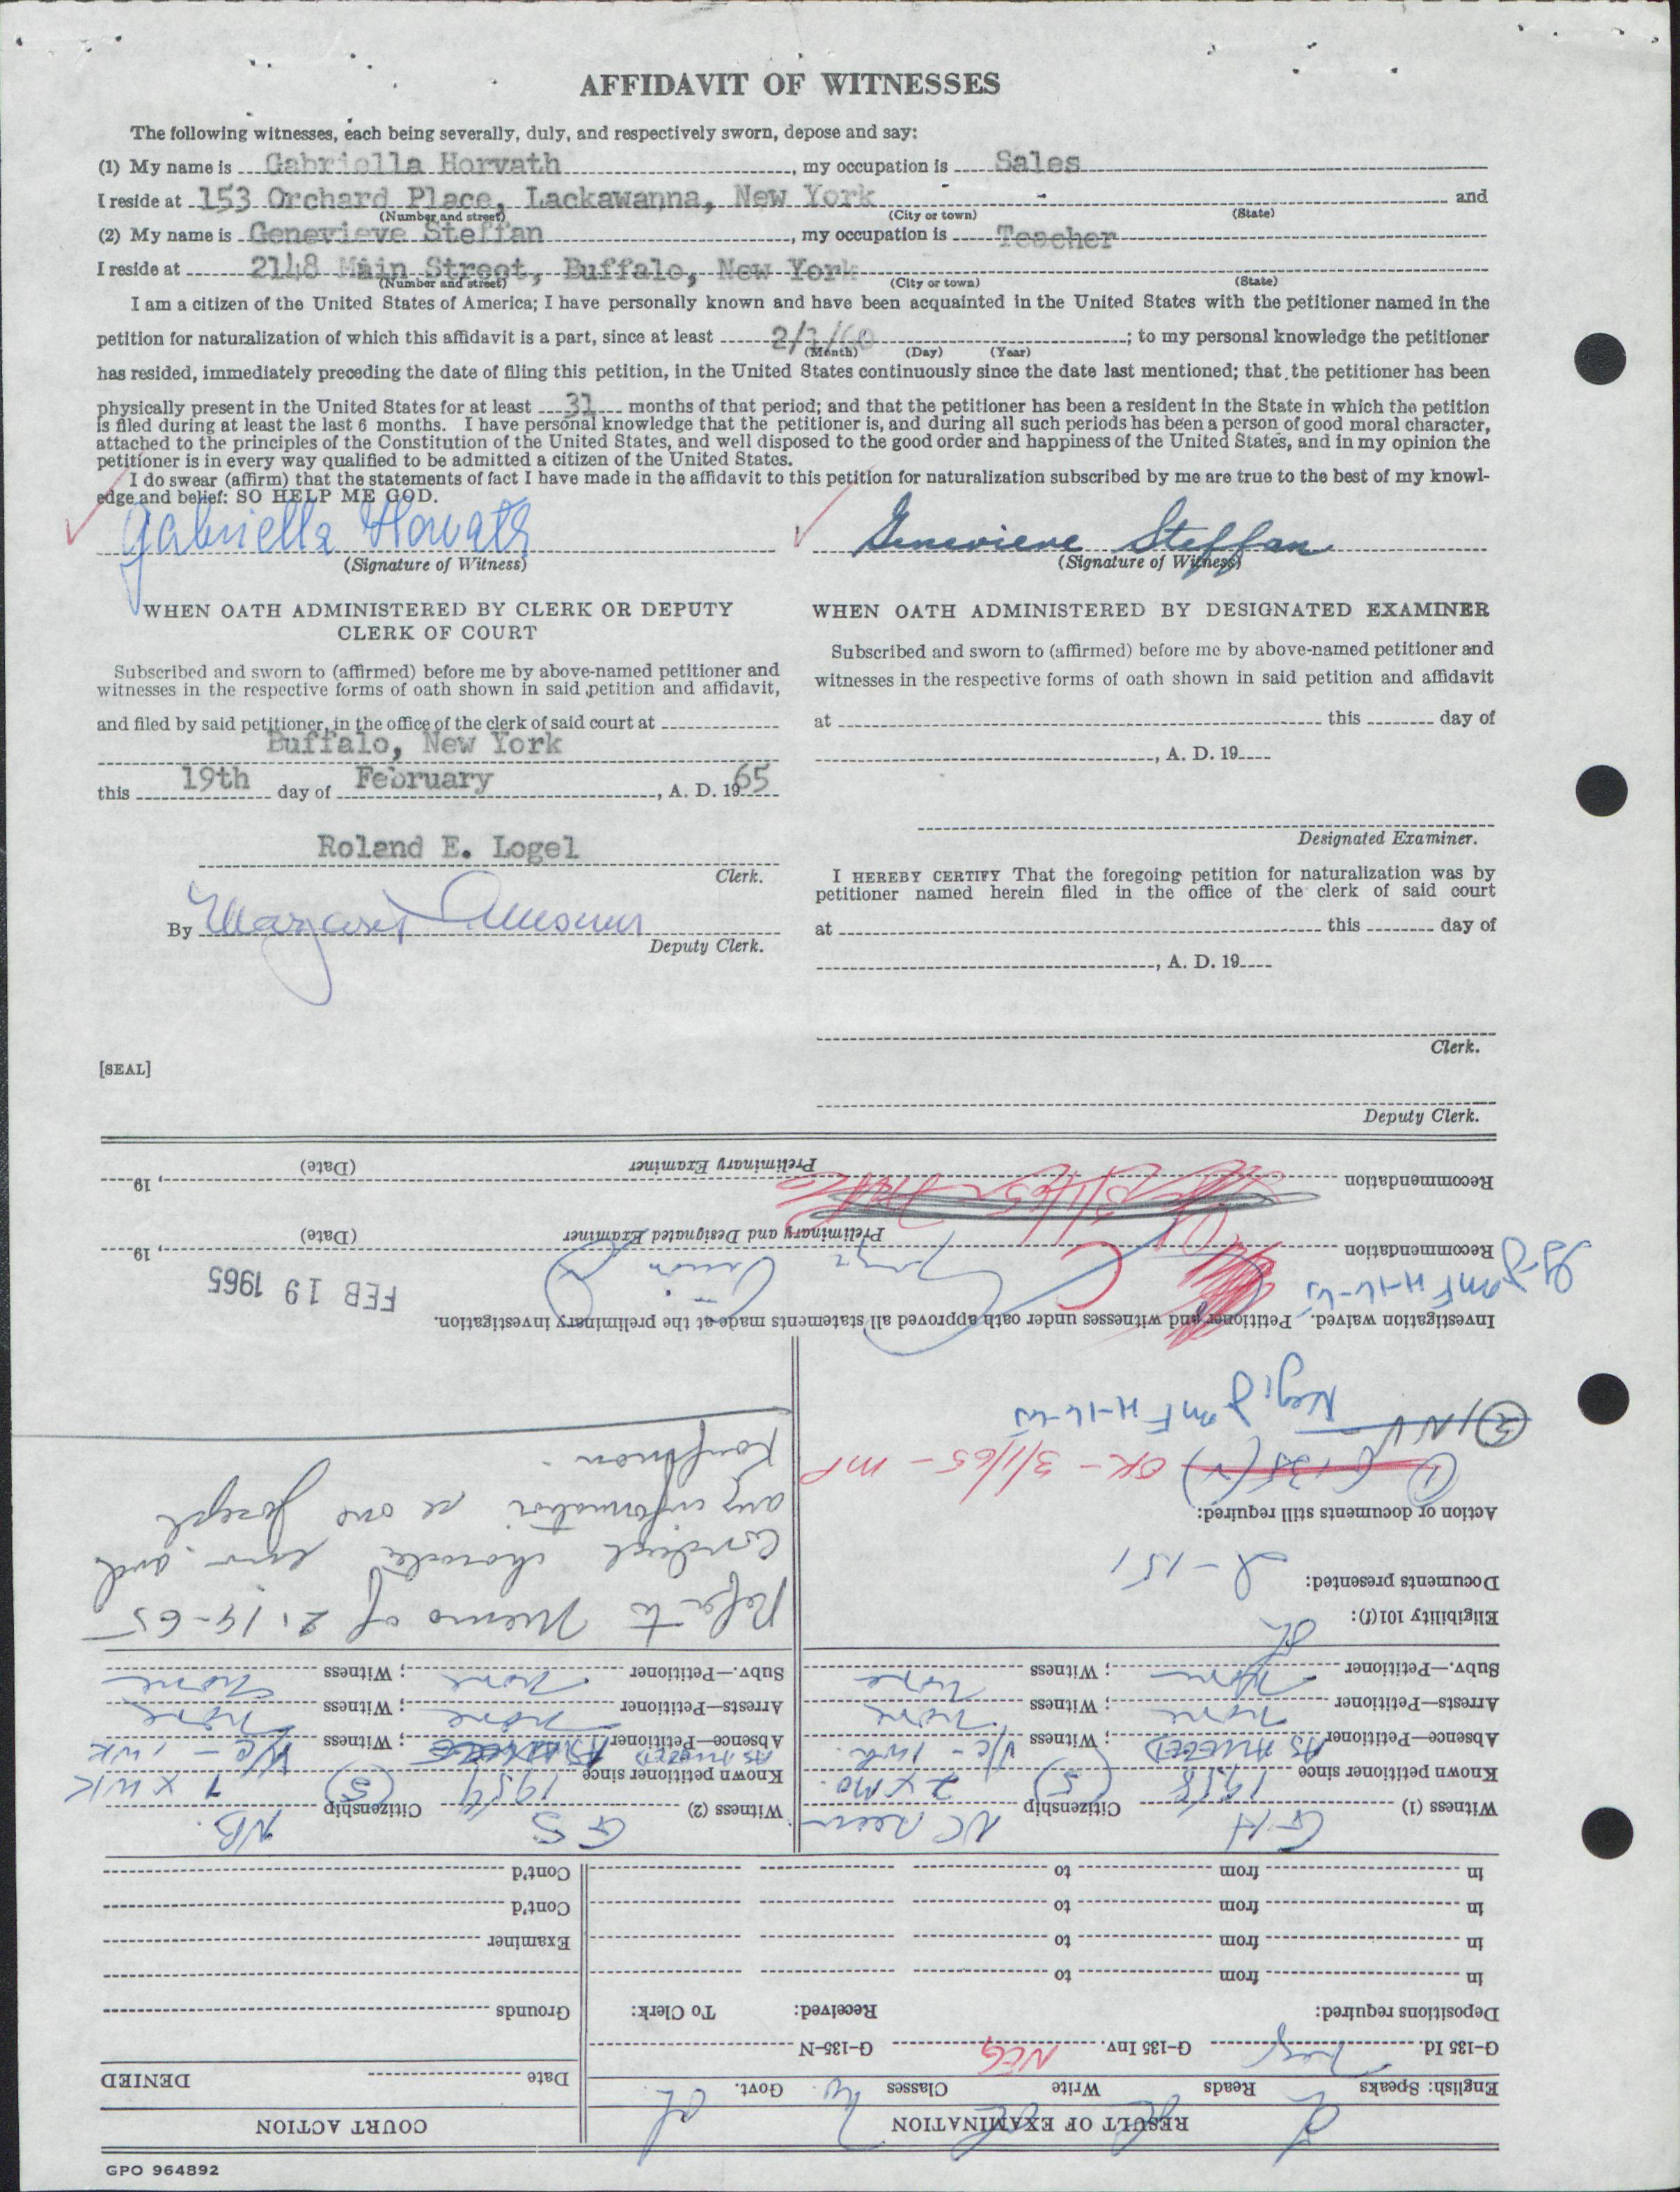 AFFIDAVIT OF WITNESSES
The following witnesses, each being severally, duly, and respectively sworn, depose and say:
(1) My name is Gabriella Horvath, my occupation is Sales
I reside at 153 Orchard Place, Lackawanna, New York and
(Number and street) (City or town) (State)
(2) My name is Genevieve Steffan, my occupation is Teacher
I reside at 2148 Main Street, Buffalo, New York
(Number and street) (City or town) (State)
I am a citizen of the United States of America; I have personally known and have been acquainted in the United States with the petitioner named in the
petition for naturalization of which this affidavit is a part, since at least 2/1/60; to my personal knowledge the petitioner
(Month) (Day) (Year)
has resided, immediately preceding the date of filing this petition, in the United States continuously since the date last mentioned; that the petitioner has been
physically present in the United States for at least 31 months of that period; and that the petitioner has been a resident in the State in which the petition
is filed during at least the last 6 months. I have personal knowledge that the petitioner is, and during all such periods has been a person of good moral character,
attached to the principles of the Constitution of the United States, and well disposed to the good order and happiness of the United States, and in my opinion the
petitioner is in every way qualified to be admitted a citizen of the United States.
I do swear (affirm) that the statements of fact I have made in the affidavit to this petition for naturalization subscribed by me are true to the best of my knowl-
edge and belief: SO HELP ME GOD.
Gabriella Horvath
(Signature of Witness)
Genevieve Steffan
(Signature of Witness)
WHEN OATH ADMINISTERED BY CLERK OR DEPUTY
CLERK OF COURT
Subscribed and sworn to (affirmed) before me by above-named petitioner and
witnesses in the respective forms of oath shown in said petition and affidavit,
and filed by said petitioner, in the office of the clerk of said court at
Buffalo, New York
this 19th day of February, A. D. 1965
Roland E. Logel
Clerk.
By Margaret
Deputy Clerk.
[SEAL]
WHEN OATH ADMINISTERED BY DESIGNATED EXAMINER
Subscribed and sworn to (affirmed) before me by above-named petitioner and
witnesses in the respective forms of oath shown in said petition and affidavit
at this day of
, A. D. 19
Designated Examiner.
I HEREBY CERTIFY That the foregoing petition for naturalization was by
petitioner named herein filed in the office of the clerk of said court
at this day of
, A. D. 19
Clerk.
Deputy Clerk.
GPO 964892
RESULT OF EXAMINATION
English: Speaks Reads Write Classes Govt.
G-135 Id. Neg G-135 Inv. NEG G-135-N
Depositions required: Received: To Clerk:
in from to
in from to
in from to
in from to
COURT ACTION
Date DENIED
Grounds
Examiner
Cont'd
Cont'd
Witness (1) GH Citizenship
Known petitioner since 1958 (5) 2 x mo.
Absence—Petitioner AS ALLEGED; Witness
Arrests—Petitioner none; Witness none
Subv.—Petitioner none; Witness none
Eligibility 101(f):
Documents presented: I-151
Action or documents still required:
(1) G-135(r) OK - 3/1/65 - MP
(2) INV Neg.
Witness (2) GS Citizenship NB.
Known petitioner since 1954 (5) 1 x WK
Absence—Petitioner AS ALLEGED; Witness
Arrests—Petitioner none; Witness none
Subv.—Petitioner none; Witness none
Refer to Memo of 2-19-65
any information re one Joseph
Kauffman.
Investigation waived. Petitioner and witnesses under oath approved all statements made at the preliminary investigation.
FEB 19 1965
Recommendation , 19
Preliminary and Designated Examiner (Date)
Recommendation , 19
Preliminary Examiner (Date)